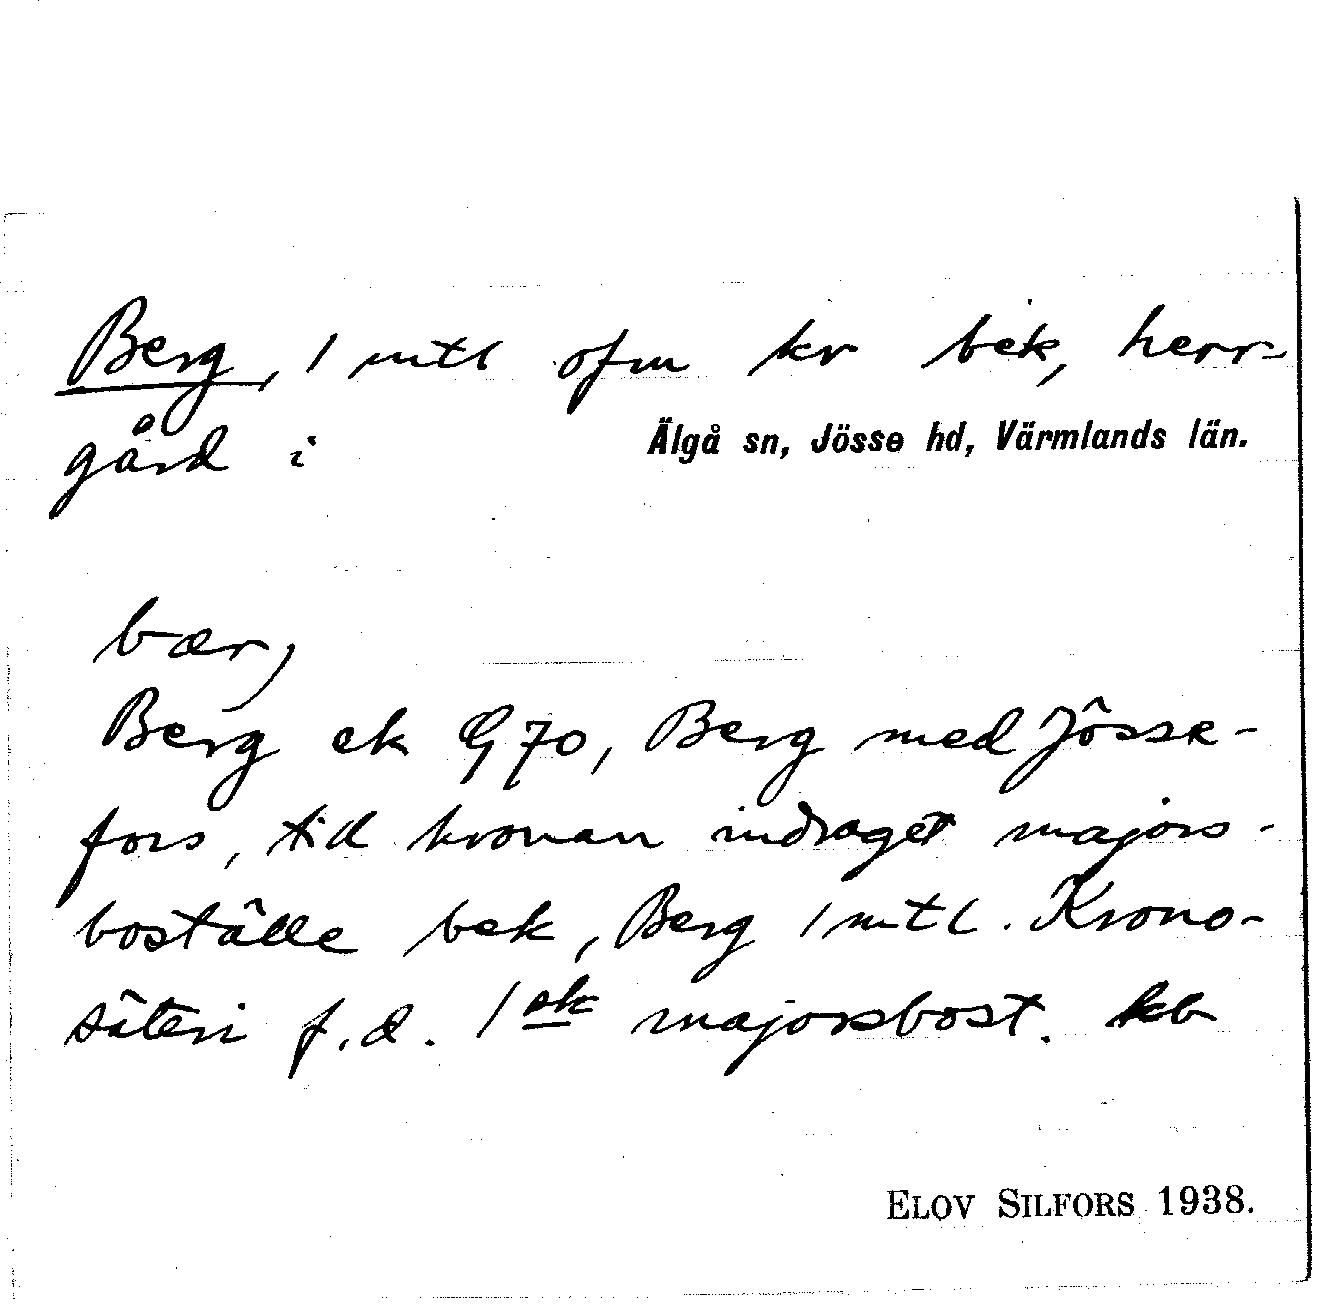 Berg, 1 mtl ofm kr bek, herr-
gård i Älgå sn, Jösse hd, Värmlands län.
bær,
Berg ek G 70, Berg med Jösse-
fors, till kronan indraget majors-
boställe bek, Berg 1 mtl. Krono-
säteri f.d. majorsbost. kb
ELOV SILFORS 1938.